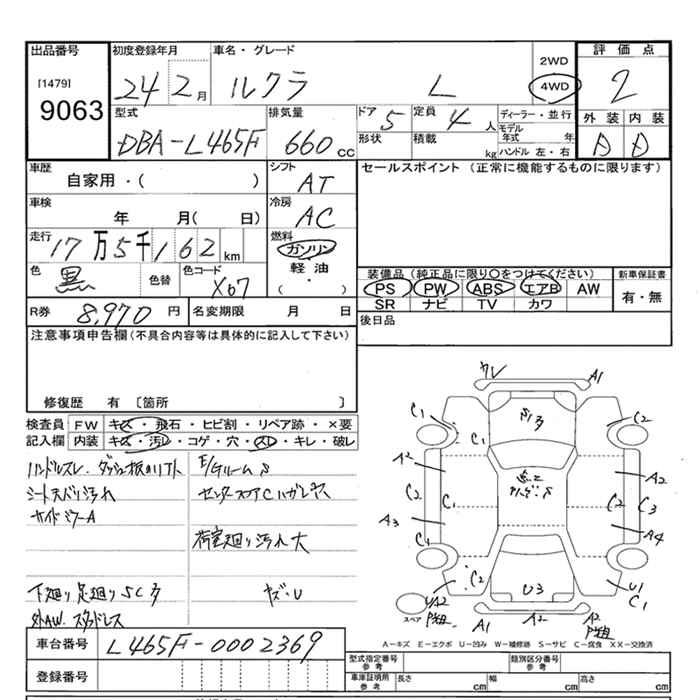 出品番号 初度登録年月 車名・グレード 2WD 評価点
[1479] 24 2月 ルクラ L 4WD 2
9063 型式 排気量 ドア 定員 ディーラー・並行 外装 内装
DBA-L465F 660cc 5 4人 モデル年式 年 D
形状 積載 kg ハンドル 左・右
車歴 シフト セールスポイント (正常に機能するものに限ります)
自家用・( ) AT
車検 冷房
年 月( 日) AC
走行 燃料
17万5千162km ガソリン
色 色替 色コード 軽油 装備品 (純正品に限り○をつけてください) 新車保証書
黒 X07 ( ・ ) PS PW ABS エアB AW 有・無
SR ナビ TV カワ
R券 8,970円 名変期限 月 日 後日品
注意事項申告欄(不具合内容等は具体的に記入して下さい)
修復歴 有 [箇所 ]
検査員 FW キズ・飛石・ヒビ割・リペア跡・×要
記入欄 内装 キズ・汚レ・コゲ・穴・スレ・キレ・破レ
ハンドルスレ、ダッシュ板ヨリ下ト E/GルームS
シート天バリ汚れ
サイドミラーA
荷室廻り汚れ大
下廻り足廻りSC多 キズ・U
外AW スタッドレス
車台番号 L465F-0002369
登録番号
A1
C1 C2
C1
A2 A2
C2 C1 C2 C3
A3 C1 A4
C2 U3 U1
スペア UA2 C1
A1 A2 A2
A=キズ E=エクボ U=凹み W=補修跡 S=サビ C=腐食 XX=交換済
型式指定番号 参考 類別区分番号 参考
車庫証明用 参考 長さ cm 幅 cm 高さ cm